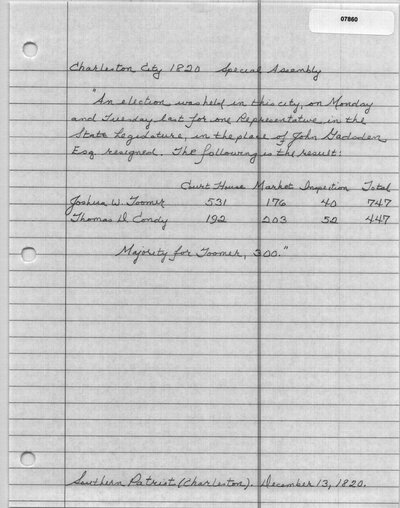 07860
Charleston City 1820 Special Assembly
"An election was held in this city, on Monday
and Tuesday last for one Representative, in the
State Legislature, in the place of John Gadsden,
Esq. resigned. The following is the result:
Court House Market Inspection Total
Joshua W. Toomer 531 176 40 747
Thomas D Condy 192 203 50 447
Majority for Toomer, 300."
Southern Patriot (Charleston). December 13, 1820.